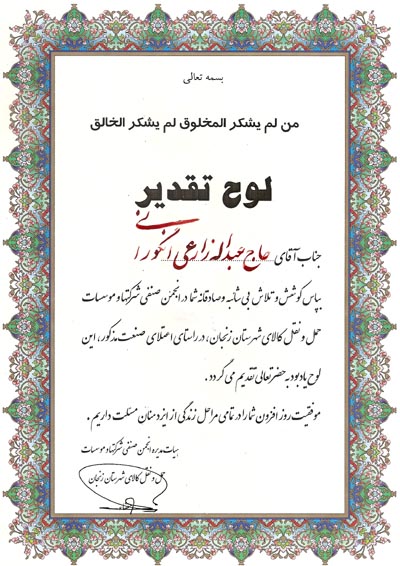 بسمه تعالی
من لم یشکر المخلوق لم یشکر الخالق
لوح تقدیر
جناب آقای حاج عبداله زارعی انگورانی
بپاس کوشش و تلاش بی شائبه و صادقانه شما در انجمن صنفی شرکتها و موسسات
حمل و نقل کالای شهرستان زنجان، در راستای اعتلای صنعت مذکور، این
لوح یادبود به حضرتعالی تقدیم می گردد.
موفقیت روز افزون شما را در تمامی مراحل زندگی از ایزد منان مسئلت داریم.
هیات مدیره انجمن صنفی شرکتها و موسسات
حمل و نقل کالای شهرستان زنجان